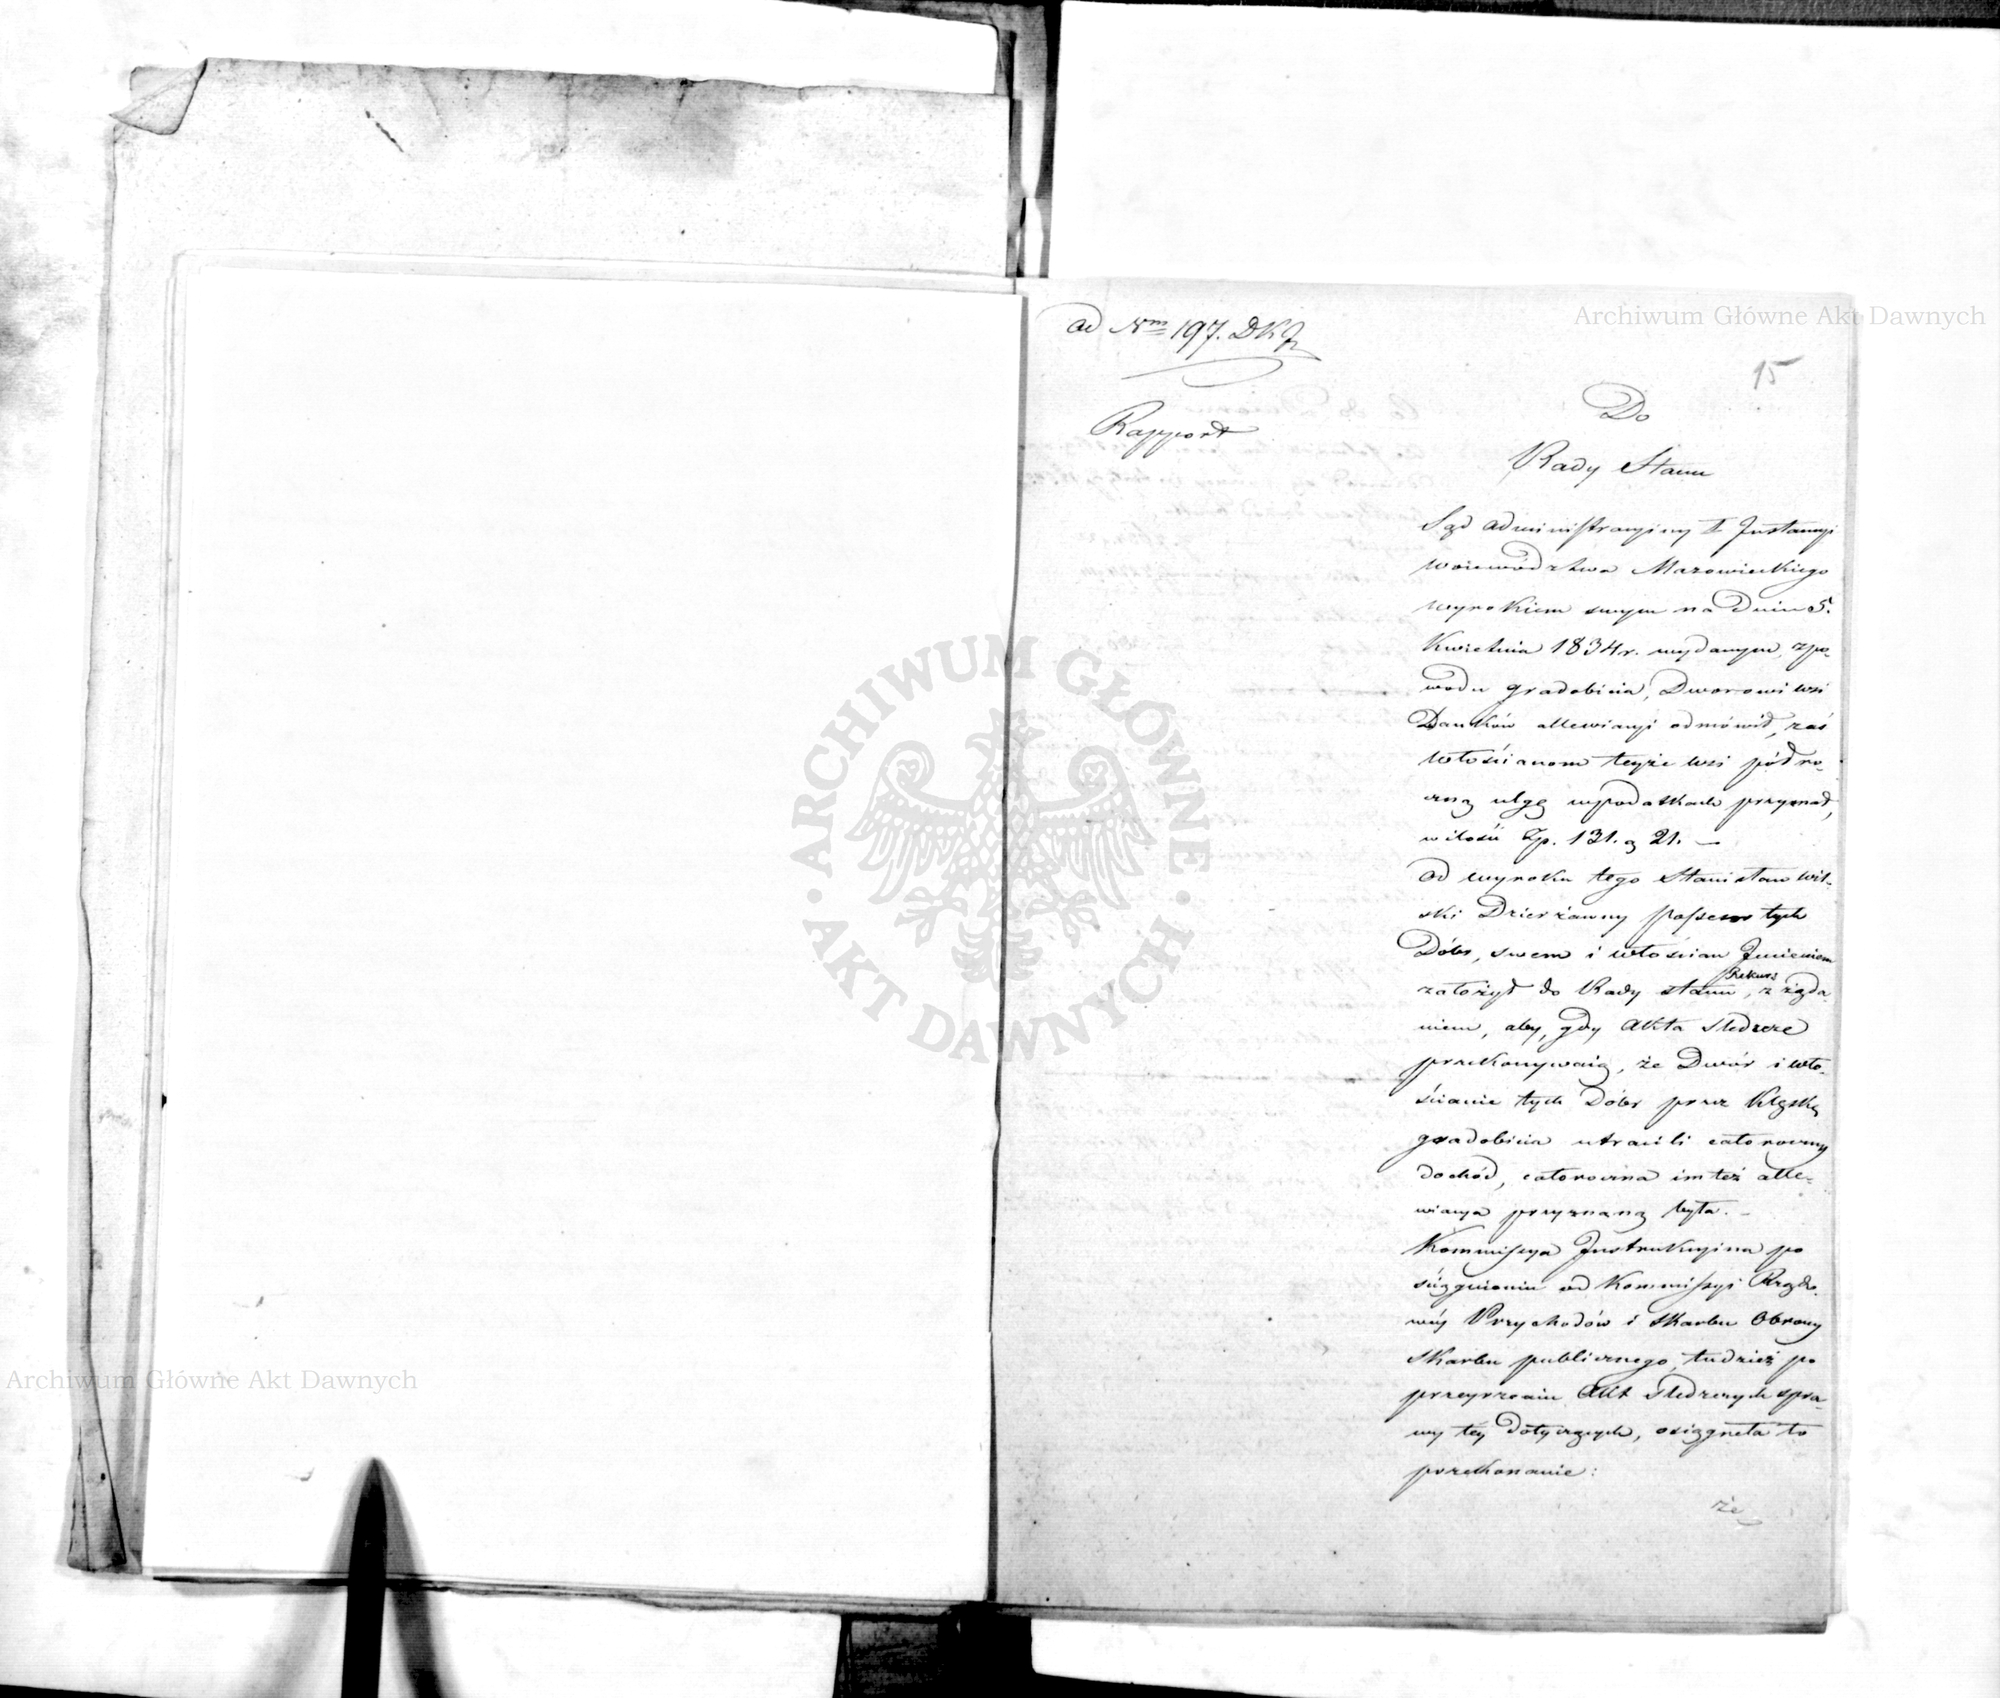 ad Nrm 197. DKJ
15
Rapport
Do
Rady Stanu
Sąd administracyiny II Instancyi
Województwa Mazowieckiego
wyrokiem swym na Dniu 5.
Kwietnia 1834 r. wydanym, z po-
wodu gradobicia, Dworowi wsi
Dańków allewiacyi odmówił, zaś
Włościanom teyże wsi półro-
czną ulgę w podatkach przyznał,
w ilości Zp. 131. g 21. —
Od wyroku tego Stanisław Wil-
ski Dzierżawny possesor tych
Dóbr, swem i włościan Jmieniem
założył do Rady Stanu Rekurs, z żąda-
niem, aby, gdy Akta śledcze
przekonywaią, że Dwór i Wło-
ścianie tych Dóbr przez klęskę
gradobicia utracili całoroczny
dochód, całoroczna im też alle-
wiacya przyznaną była. —
Kommissya Jnstrukcyina po
ściągnieniu od Kommissyi Rządo-
wéy Przychodów i Skarbu Obrony
Skarbu publicznego, tudzież po
przeyrzeniu Akt śledczych spra-
wy tey dotyczących, osiągnęła to
przekonanie:
że
Archiwum Główne Akt Dawnych
Archiwum Główne Akt Dawnych
ARCHIWUM GŁÓWNE · AKT DAWNYCH ·